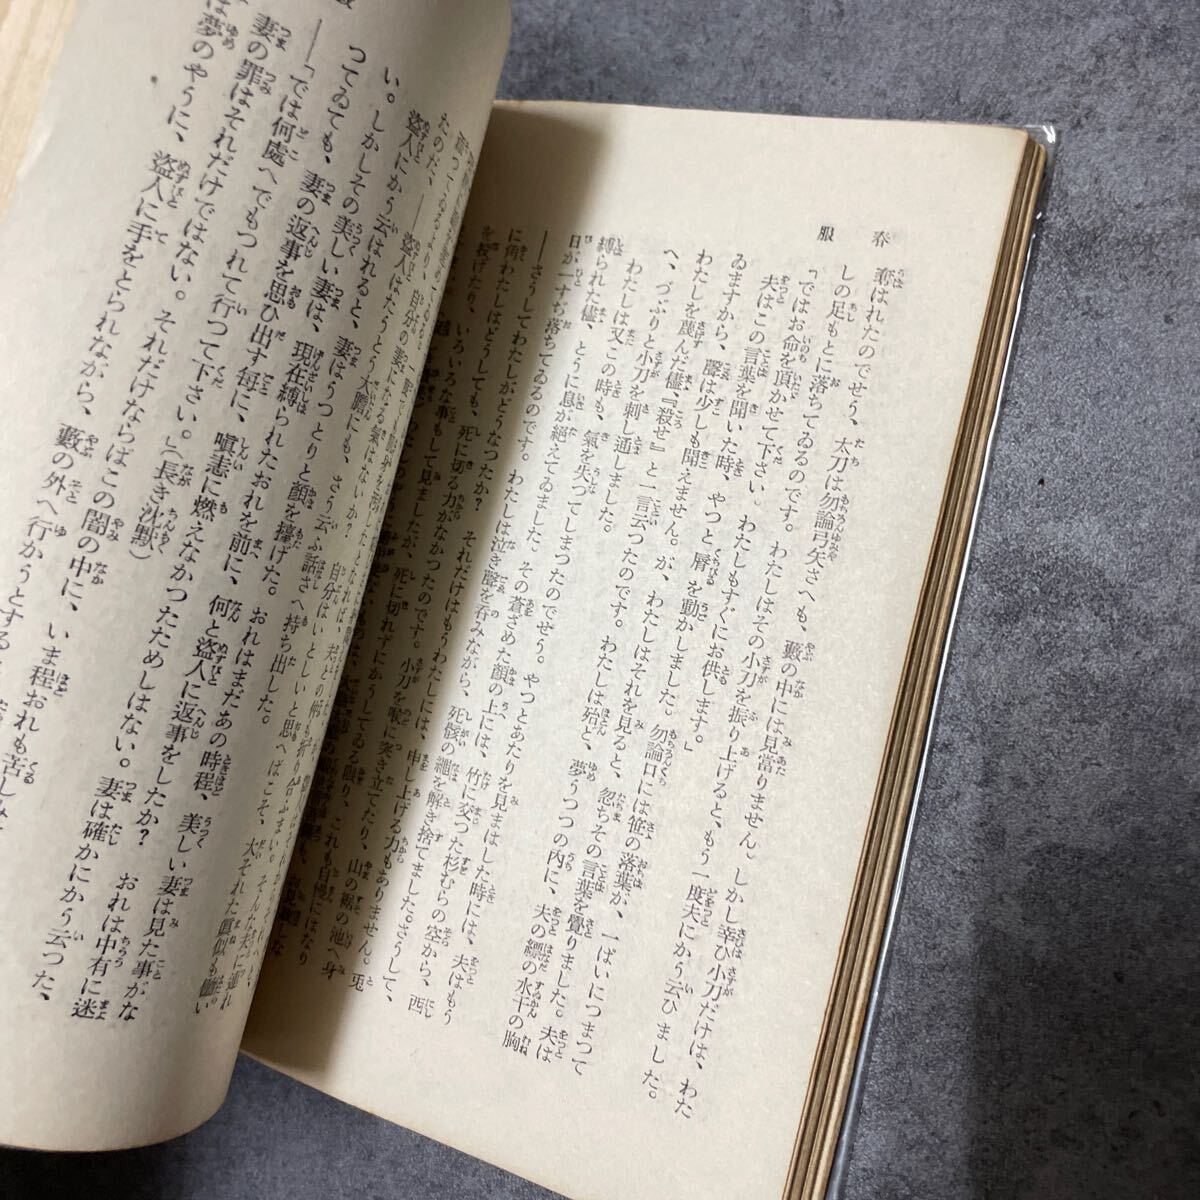 春服
奪はれたのでせう、太刀は勿論弓矢さへも、藪の中には見當りません。しかし幸ひ小刀だけは、わた
しの足もとに落ちてゐるのです。わたしはその小刀を振り上げると、もう一度夫にかう云ひました。
「ではお命を頂かせて下さい。わたしもすぐにお供します。」
夫はこの言葉を聞いた時、やつと脣を動かしました。勿論口には笹の落葉が、一ぱいにつまつて
ゐますから、聲は少しも聞えません。が、わたしはそれを見ると、忽ちその言葉を覺りました。夫は
わたしを蔑んだ儘、『殺せ』と一言云つたのです。わたしは殆と、夢うつつの内に、夫の縹の水干の胸
へ、づぶりと小刀を刺し通しました。
わたしは又この時も、氣を失つてしまつたのでせう。やつとあたりを見まはした時には、夫はもう
縛られた儘、とうに息が絕えてゐました。その蒼ざめた顏の上には、竹に交つた杉むらの空から、西
日が一すぢ落ちてゐるのです。わたしは泣き聲を呑みながら、死骸の繩を解き捨てました。さうして、
――さうしてわたしがどうなつたか? それだけはもうわたしには、申し上げる力もありません。兎
に角わたしはどうしても、死に切る力がなかつたのです。小刀を喉に突き立てたり、山の裾の池へ身
を投げたり、いろいろな事もして見ましたが、死に切れずにかうしてゐる限り、これも自慢にはなり
たのだ、――盜人はたうとう大膽にも、さう云ふ話さへ持ち出した。
盜人にかう云はれると、妻はうつとりと顏を擡げた。おれはまだあの時程、美しい妻は見た事がな
い。しかしその美しい妻は、現在縛られたおれを前に、何と盜人に返事をしたか? おれは中有に迷
つてゐても、妻の返事を思ひ出す每に、嗔恚に燃えなかつたためしはない。妻は確かにかう云つた、
――「では何處へでもつれて行つて下さい。」(長き沈默)
妻の罪はそれだけではない。それだけならばこの闇の中に、いま程おれも苦しみ
は夢のやうに、盜人に手をとられながら、藪の外へ行かうとする